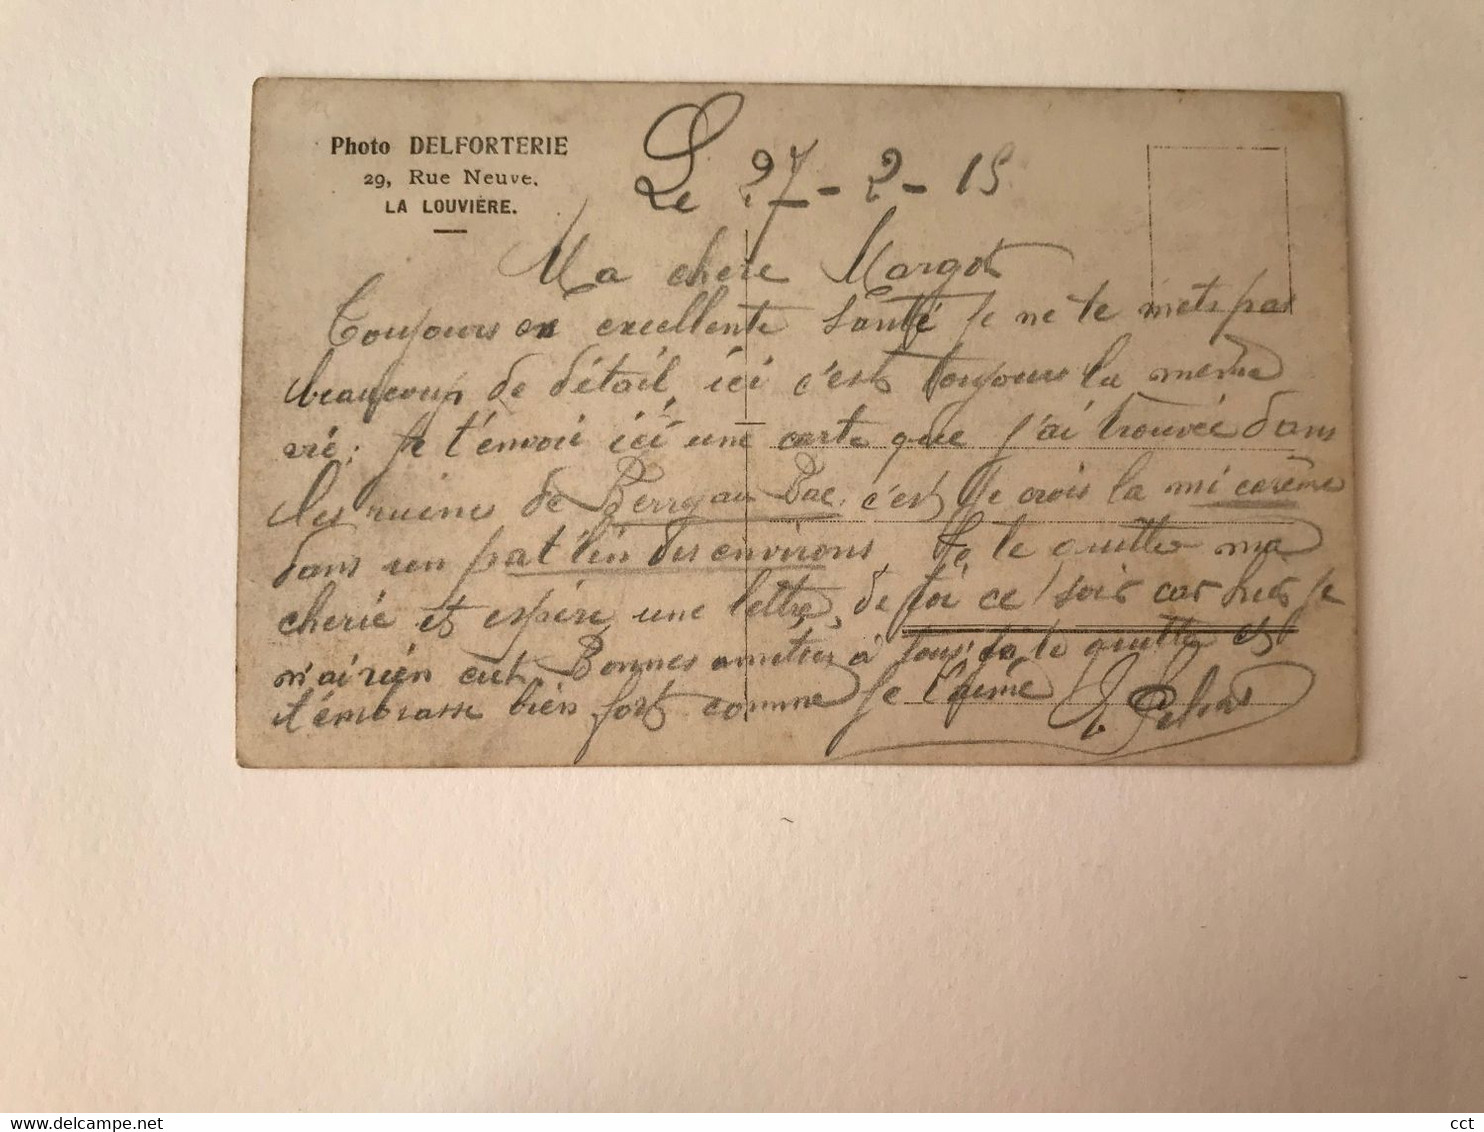 Photo DELFORTERIE
29, Rue Neuve.
LA LOUVIÈRE.
Le 27-2-15
Ma chere Margot
Toujours en excellente Santé Je ne te mets pas
beaucoup de détail, ici c'est toujours la même
vie; Je t'envoi ici une carte que j'ai trouvée dans
les ruines de Berry au Bac. c'est je crois la mi carême
dans un des environs Je te quitte ma
cherie et espère une lettre, de toi ce soir car hier je
n'ai rien eut. Bonnes amities à tous. Je te quitte et
t'embrasse bien fort comme Je t'aime
cct